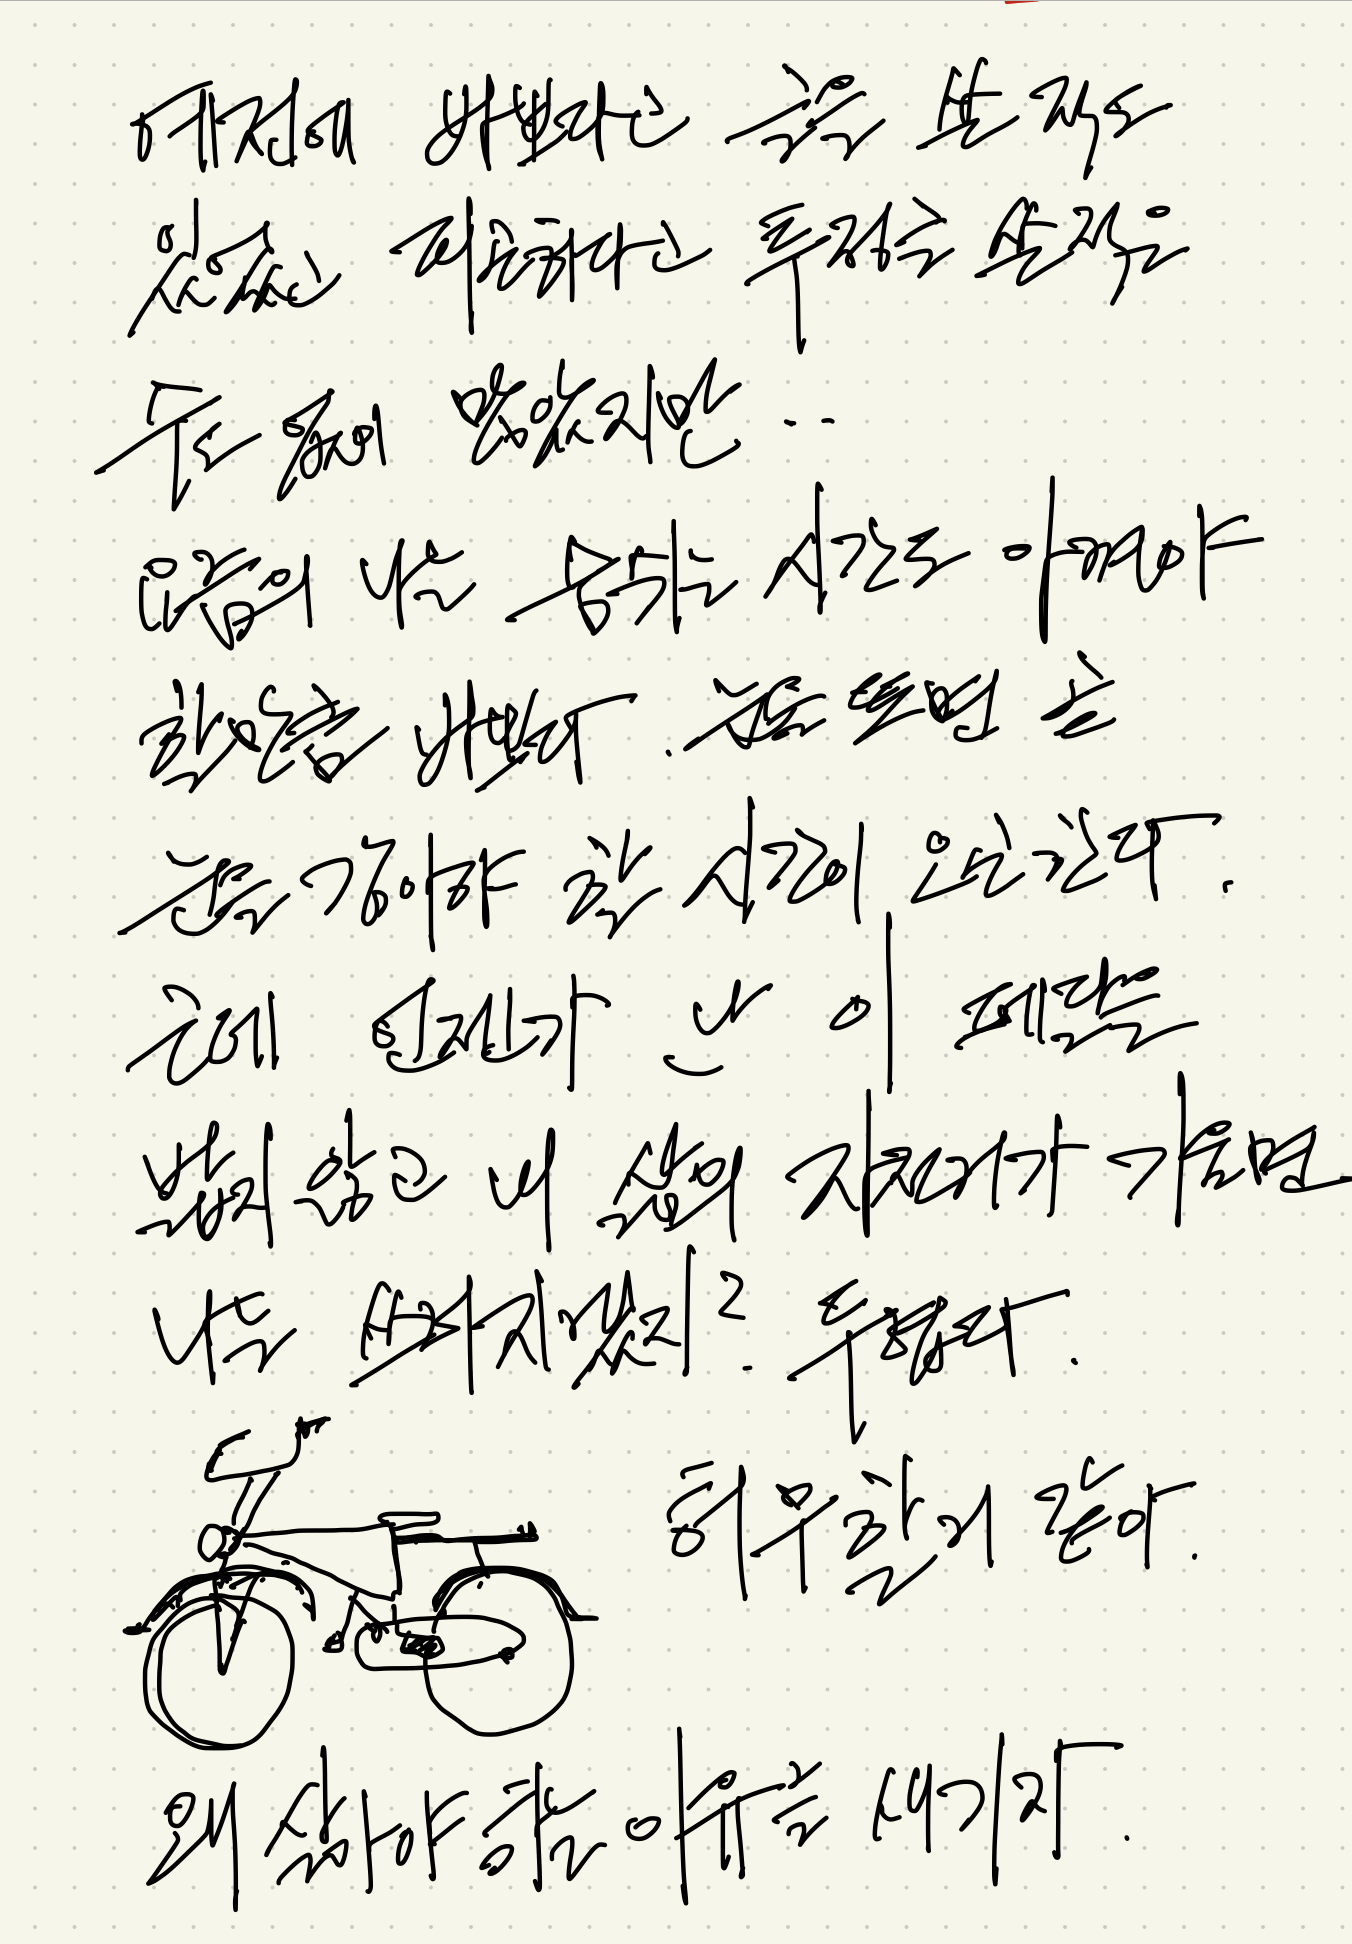 예전에 바쁘다는 글을 쓸 적도
있었는 지루하다는 투정을 쓸 적은
두는 힘이 많았지만..
요즘의 나는 흠칫 시간도 아껴야
할 만큼 바쁘다. 눈을 뜨면 곧
눈을 감아야 할 시간이 오는 것 같다.
근데 언젠가 난 이 페달을
밟지 않고 내 삶의 자전거가 가을면
나는 쓰러지겠지? 두렵다.
허무할 거 같아.
왜 살아야 하는 이유를 새기자.